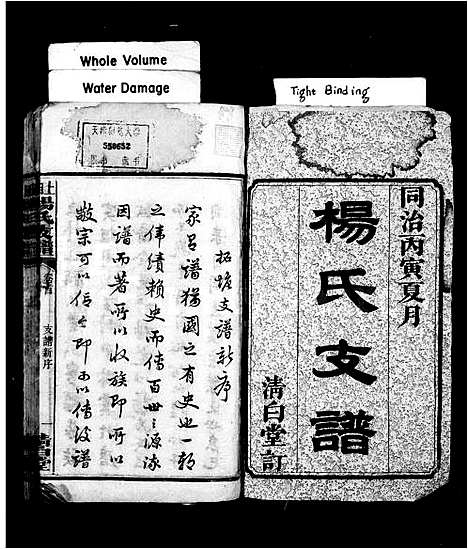 Whole Volume
Water Damage
Tight Binding
同治丙寅夏月
楊氏支譜
清白堂訂
支譜新序
家之譜猶國之有史也一朝
之偉績賴史而傳百世之源流
因譜而著所以收族即所以
敬宗可以信今即可以傳後譜
楊氏支譜
支譜新序
清白堂
550652